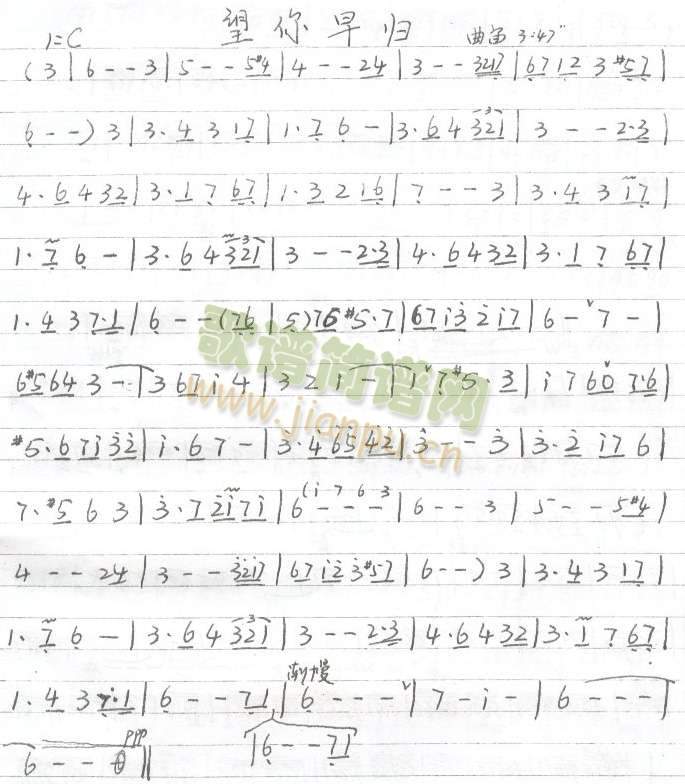 望你早归
1=C 曲笛 3:47"
( 3 | 6 - - 3 | 5 - - 5#4 | 4 - - 24 | 3 - - 3217 | 6712 3 #57 |
6 - - ) 3 | 3·4 3 17 | 1·7 6 - | 3·6 4 321 | 3 - - 2·3 |
4·6 4 32 | 3·1 7 67 | 1·3 2 16 | 7 - - 3 | 3·4 3 17 |
1·7 6 - | 3·6 4 321 | 3 - - 2·3 | 4·6 4 32 | 3·1 7 67 |
1·4 3 7·1 | 6 - - (76 | 5)76 #5·7 | 67i3 2i7 | 6 - ˅ 7 - |
6#564 3 - | 3 6 7 i 4 | 3 2 i - | i ˅ 7 #5·3 | i 7 60 ˅ 7·6 |
#5·67i32 | i·6 7 - | 3·46542 | 3 - - 3 | 3·2 i7 6 |
7·#5 6 3 | 3·7 2i7i | 6 - - - (i 7 6 3 | 6 - - 3 | 5 - - 5#4 |
4 - - 24 | 3 - - 32i7 | 67i2 3#57 | 6 - - ) 3 | 3·4 3 17 |
1·7 6 - | 3·6 4 321 | 3 - - 2·3 | 4·6 4 32 | 3·1 7 67 |
渐慢
1·4 3 7·1 | 6 - - 71 | 6 - - - ˅ | 7 - i - | 6 - - - |
ppp
6 - - 0 ‖ | 6 - - 71
歌谱简谱网
www.jianpu.cn